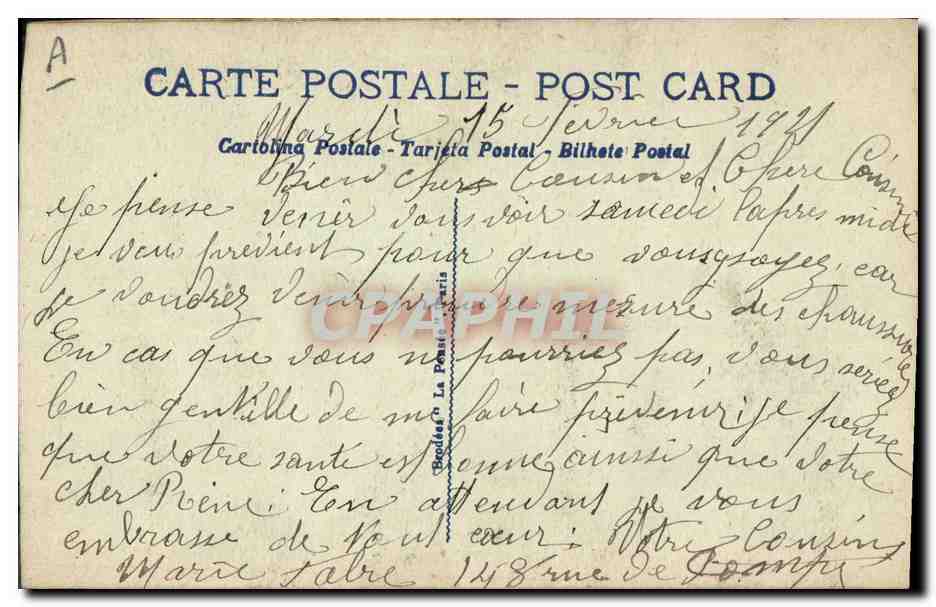 A
CARTE POSTALE - POST CARD
Mardi 15 février 1921
Cartolina Postale - Tarjeta Postal - Bilhete Postal
Bien cher Cousin et Chere Cousine
Je pense venir vous voir samedi l'apres midi
je vous previent pour que vous y soyez, car
je voudrez venir prendre mesure des chaussures
En cas que vous ne pourriez pas, vous seriez
bien gentille de me faire prévenir, je pense
que votre santé est bonne ainssi que votre
cher Réné: En attendant je vous
embrasse de tout cœur: Votre Cousine
Marie 148 rue de
Brodées "La Pensée" Paris
CPAPHIL